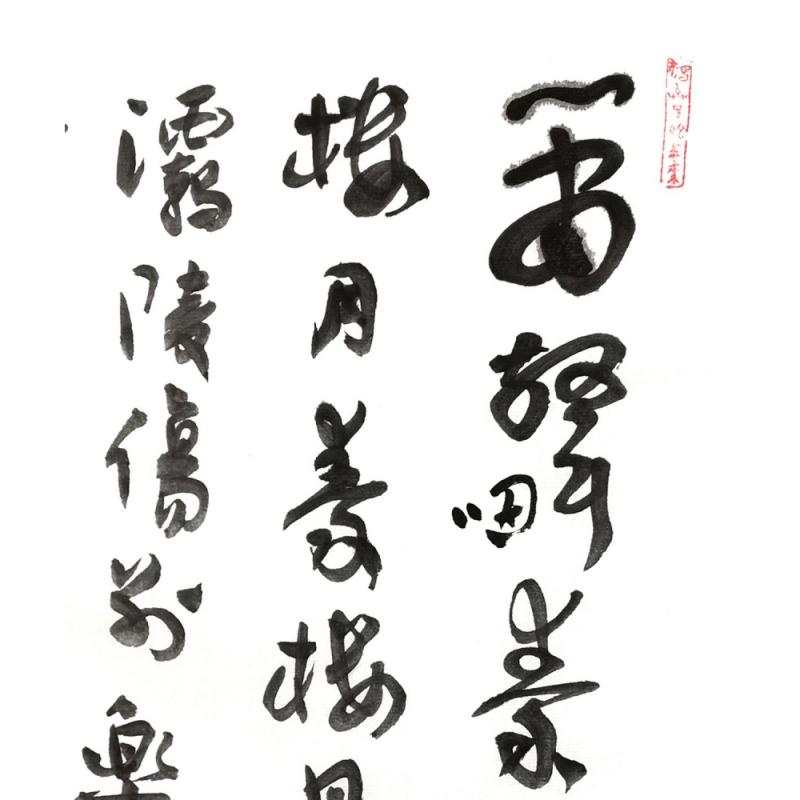 簫聲咽秦
樓月秦樓月
灞陵傷別樂